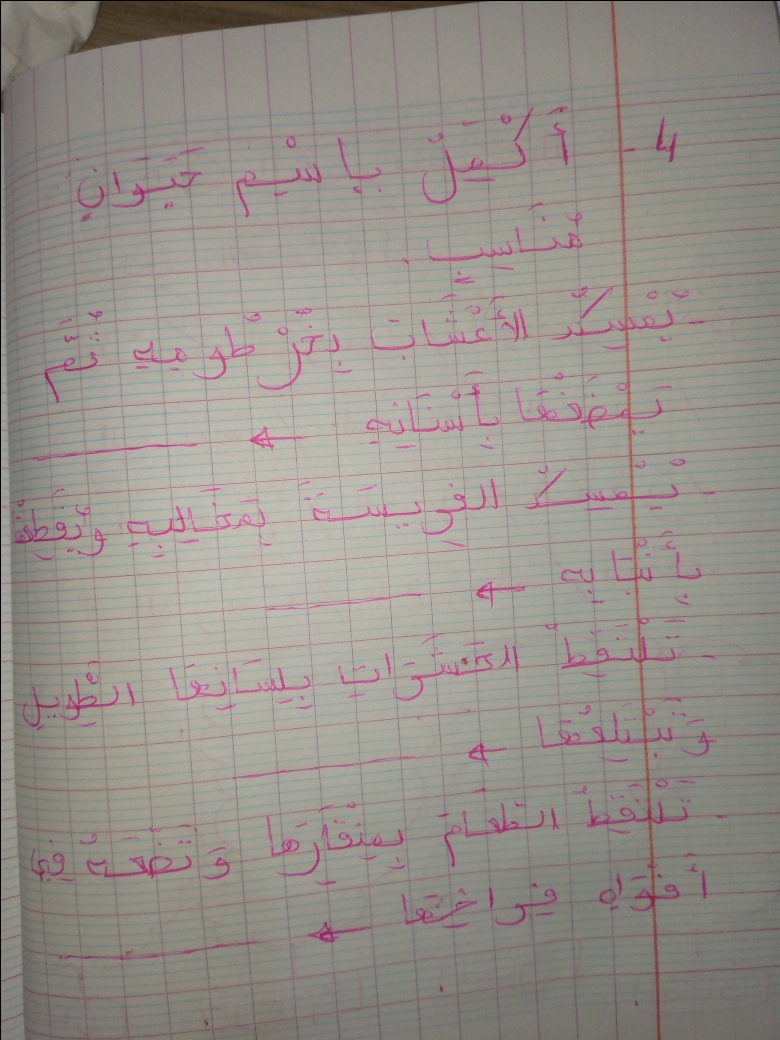 4 - أُكْمِلُ بِاسْمِ حَيَوَانٍ
مُنَاسِبٍ .
- يُمْسِكُ الأَعْشَابَ بِخُرْطُومِهِ ثُمَّ
يَمْضَغُهَا بِأَسْنَانِهِ ←
- يُمْسِكُ الفَرِيسَةَ بِمَخَالِبِهِ وَيُقَطِّعُ
بِأَنْيَابِهِ ←
- تَلْتَقِطُ الحَشَرَاتِ بِلِسَانِهَا الطَّوِيلِ
وَتَبْتَلِعُهَا ←
- تَلْتَقِطُ الطَّعَامَ بِمِنْقَارِهَا وَتَضَعُهُ فِي
أَفْوَاهِ فِرَاخِهَا ←